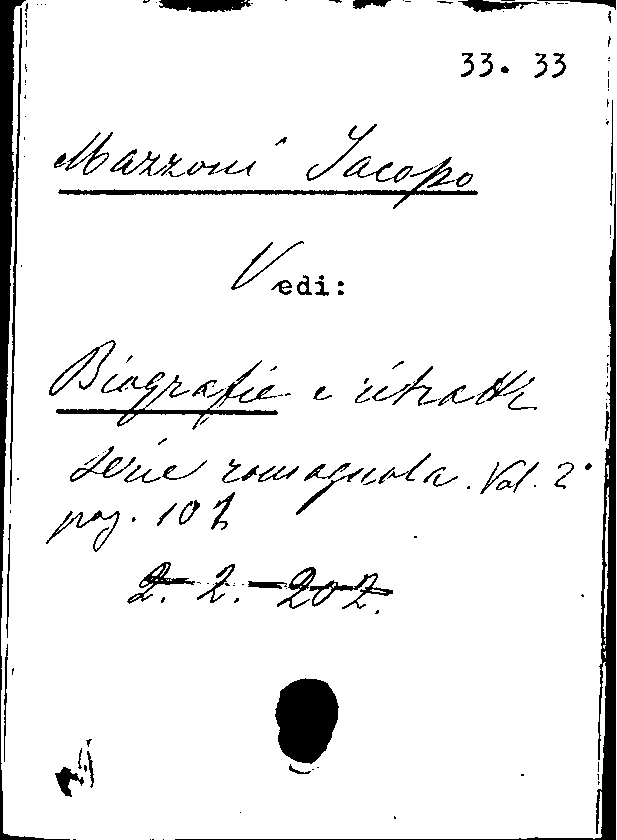 33. 33
Mazzoni Jacopo
Vedi:
Biografie e ritratti
serie romagnola. Vol. 2°
pag. 107
2. 2. 202.